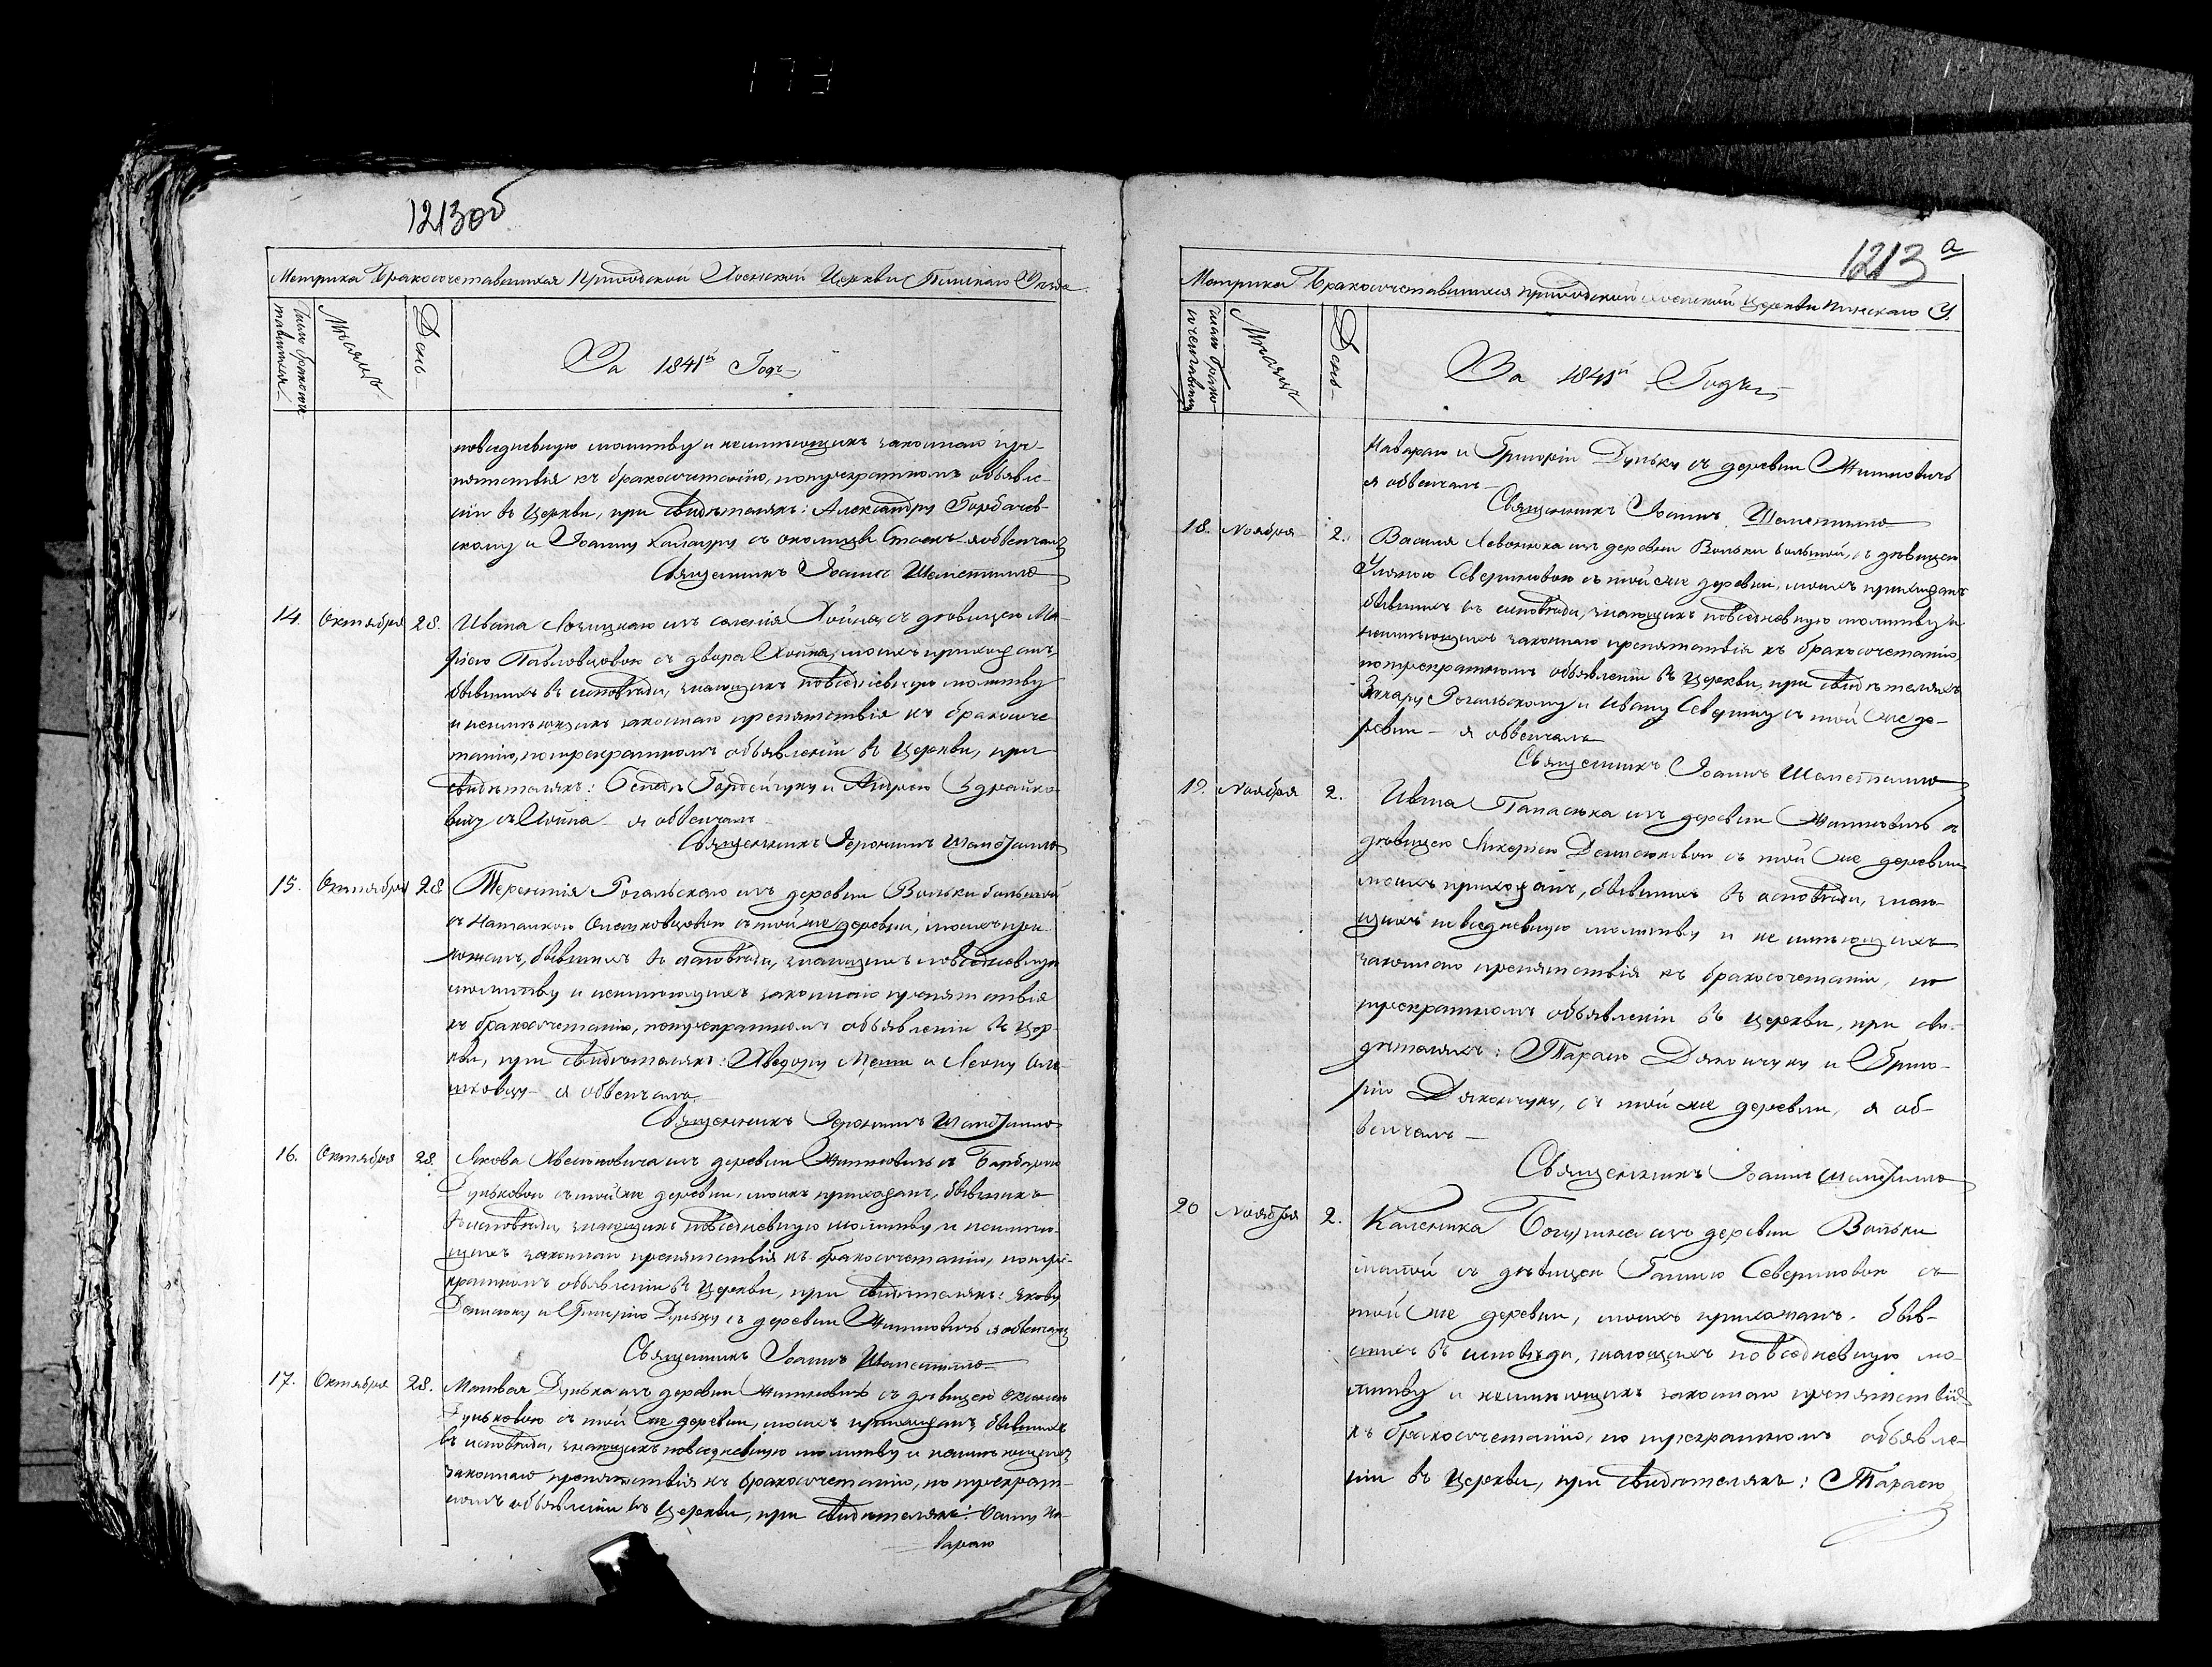 173
1213об
Метрика Бракосочетавшихся Приходской Хоенской Церкви Пинскаго Уезда
Число бракосоче-
тавшихся
Месяцъ
День
За 1841й Годъ
повседневную молитву и неимѣющихъ законнаго пре-
пятствія къ бракосочетанію, потрекратномъ объявле-
ніи въ Церкви, при свидѣтеляхъ: Александру Горбачев-
скому и Іоанну с околицы я обвенчалъ
Священникъ Іоаннъ Шеметилло
14. Октября 28. Ивана из селенія Хойна, съ дѣвицею Ма-
Павловцовою съ двора Хойна, моихъ прихожанъ,
бывшихъ въ исповѣди, знающихъ повседневную молитву
и неимѣющихъ законнаго препятствія къ бракосоче-
танію, потрекратномъ объявленіи въ Церкви, при
свидѣтеляхъ: Гордейчуку и Андрею Здрайко-
вичу съ Хойна я обвенчалъ
Священникъ Іеронимъ Шеметилло
15. Октября 28 Терентія Рогальскаго изъ деревни Вольки большой
съ Наталкою съ той же деревни, моихъ при-
хожанъ, бывшихъ въ исповѣди, знающихъ повседневную
молитву и неимѣющихъ законнаго препятствія
къ бракосочетанію, потрекратномъ объявленіи въ Цер-
кви, при свидѣтеляхъ: Хведору и Леону Оле-
шковцу я обвенчалъ
Священникъ Іеронимъ Шеметилло
16. Октября 28. Якова изъ деревни Житновичъ съ Барбарою
Дуньковою съ той же деревни, моихъ прихожанъ, бывшихъ
въ исповѣди, знающихъ повседневную молитву, и неимѣю-
щихъ законнаго препятствія къ бракосочетанію, потре-
кратномъ объявленіи въ Церкви, при свидѣтеляхъ: Якову
Денисюку и Григорію Дуньку съ деревни Житновичъ я обвенчалъ
Священникъ Іоаннъ Шеметилло
17. Октября 28. Матвея Дунька изъ деревни Житновичъ съ дѣвицею
Дуньковою съ той же деревни, моихъ прихожанъ, бывшихъ
въ исповѣди, знающихъ повседневную молитву и неимѣющихъ
законнаго препятствія къ бракосочетанію, по трекрат-
номъ объявленіи въ Церкви, при свидѣтеляхъ: На-
вараю
1213 а
Метрика Бракосочетавшихся приходской Хоенской Церкви Пинскаго У.
Число брако-
сочетавших
Месяцъ
День
За 1841й Годъ
Навараю и Григорію Дуньку съ деревни Житновичъ
я обвенчалъ
Священникъ Іоаннъ Шеметилло
18. Ноября 2. Василя Левонюка изъ деревни Вольки большой, съ дѣвицею
Улянною Севериновою съ той же деревни, моихъ прихожанъ
бывшихъ въ исповѣди, знающихъ повседневную молитву и
неимѣющихъ законнаго препятствія къ бракосочетанію,
по трекратномъ объявленіи въ Церкви, при свидѣтеляхъ
Захару Рогальскому и Ивану Северину съ той же де-
ревни – я обвенчалъ
Священникъ Іоаннъ Шеметилло
19. Ноября 2. Ивана Панасюка изъ деревни Житновичъ съ
дѣвицею Денисюковою съ той же деревни
моихъ прихожанъ, бывшихъ въ исповѣди, знаю-
щихъ повседневную молитву и неимѣющихъ
законнаго препятствія къ бракосочетанію, по
трекратномъ объявленіи въ Церкви, при сви-
дѣтеляхъ: Тарасю Дякончуку и Григо-
рію Дякончуку, съ той же деревни, я об-
венчалъ –
Священникъ Іоаннъ Шеметилло
20 Ноября 2. Каленика изъ деревни Вольки
малой съ дѣвицею Ганною Севериновою съ
той же деревни, моихъ прихожанъ, быв-
шихъ въ исповѣди, знающихъ повседневную мо-
литву и неимѣющихъ законнаго препятствія
къ бракосочетанію, по трекратномъ объявле-
ніи въ Церкви, при свидѣтеляхъ: Тарасю